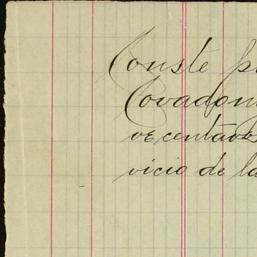 Conste p
Covadon
ve centavos
vicio de la